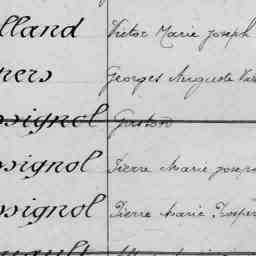 lland Victor Marie Joseph
ners Georges Auguste
ssignol Gaston
ssignol Pierre Marie Joseph
ssignol Pierre Marie Prosper